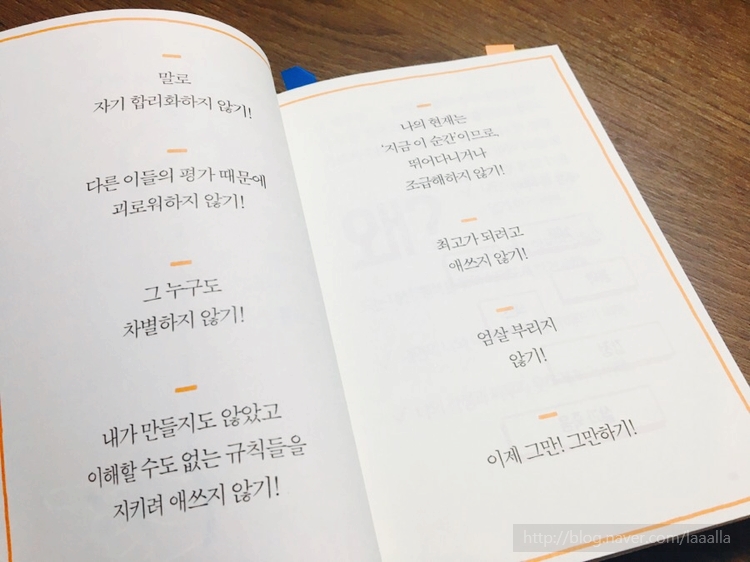 말로
자기 합리화하지 않기!
다른 이들의 평가 때문에
괴로워하지 않기!
그 누구도
차별하지 않기!
내가 만들지도 않았고
이해할 수도 없는 규칙들을
지키려 애쓰지 않기!
나의 현재는
'지금 이 순간'이므로,
뛰어다니거나
조급해하지 않기!
최고가 되려고
애쓰지 않기!
엄살 부리지
않기!
이제 그만! 그만하기!
http://blog.naver.com/laaalla